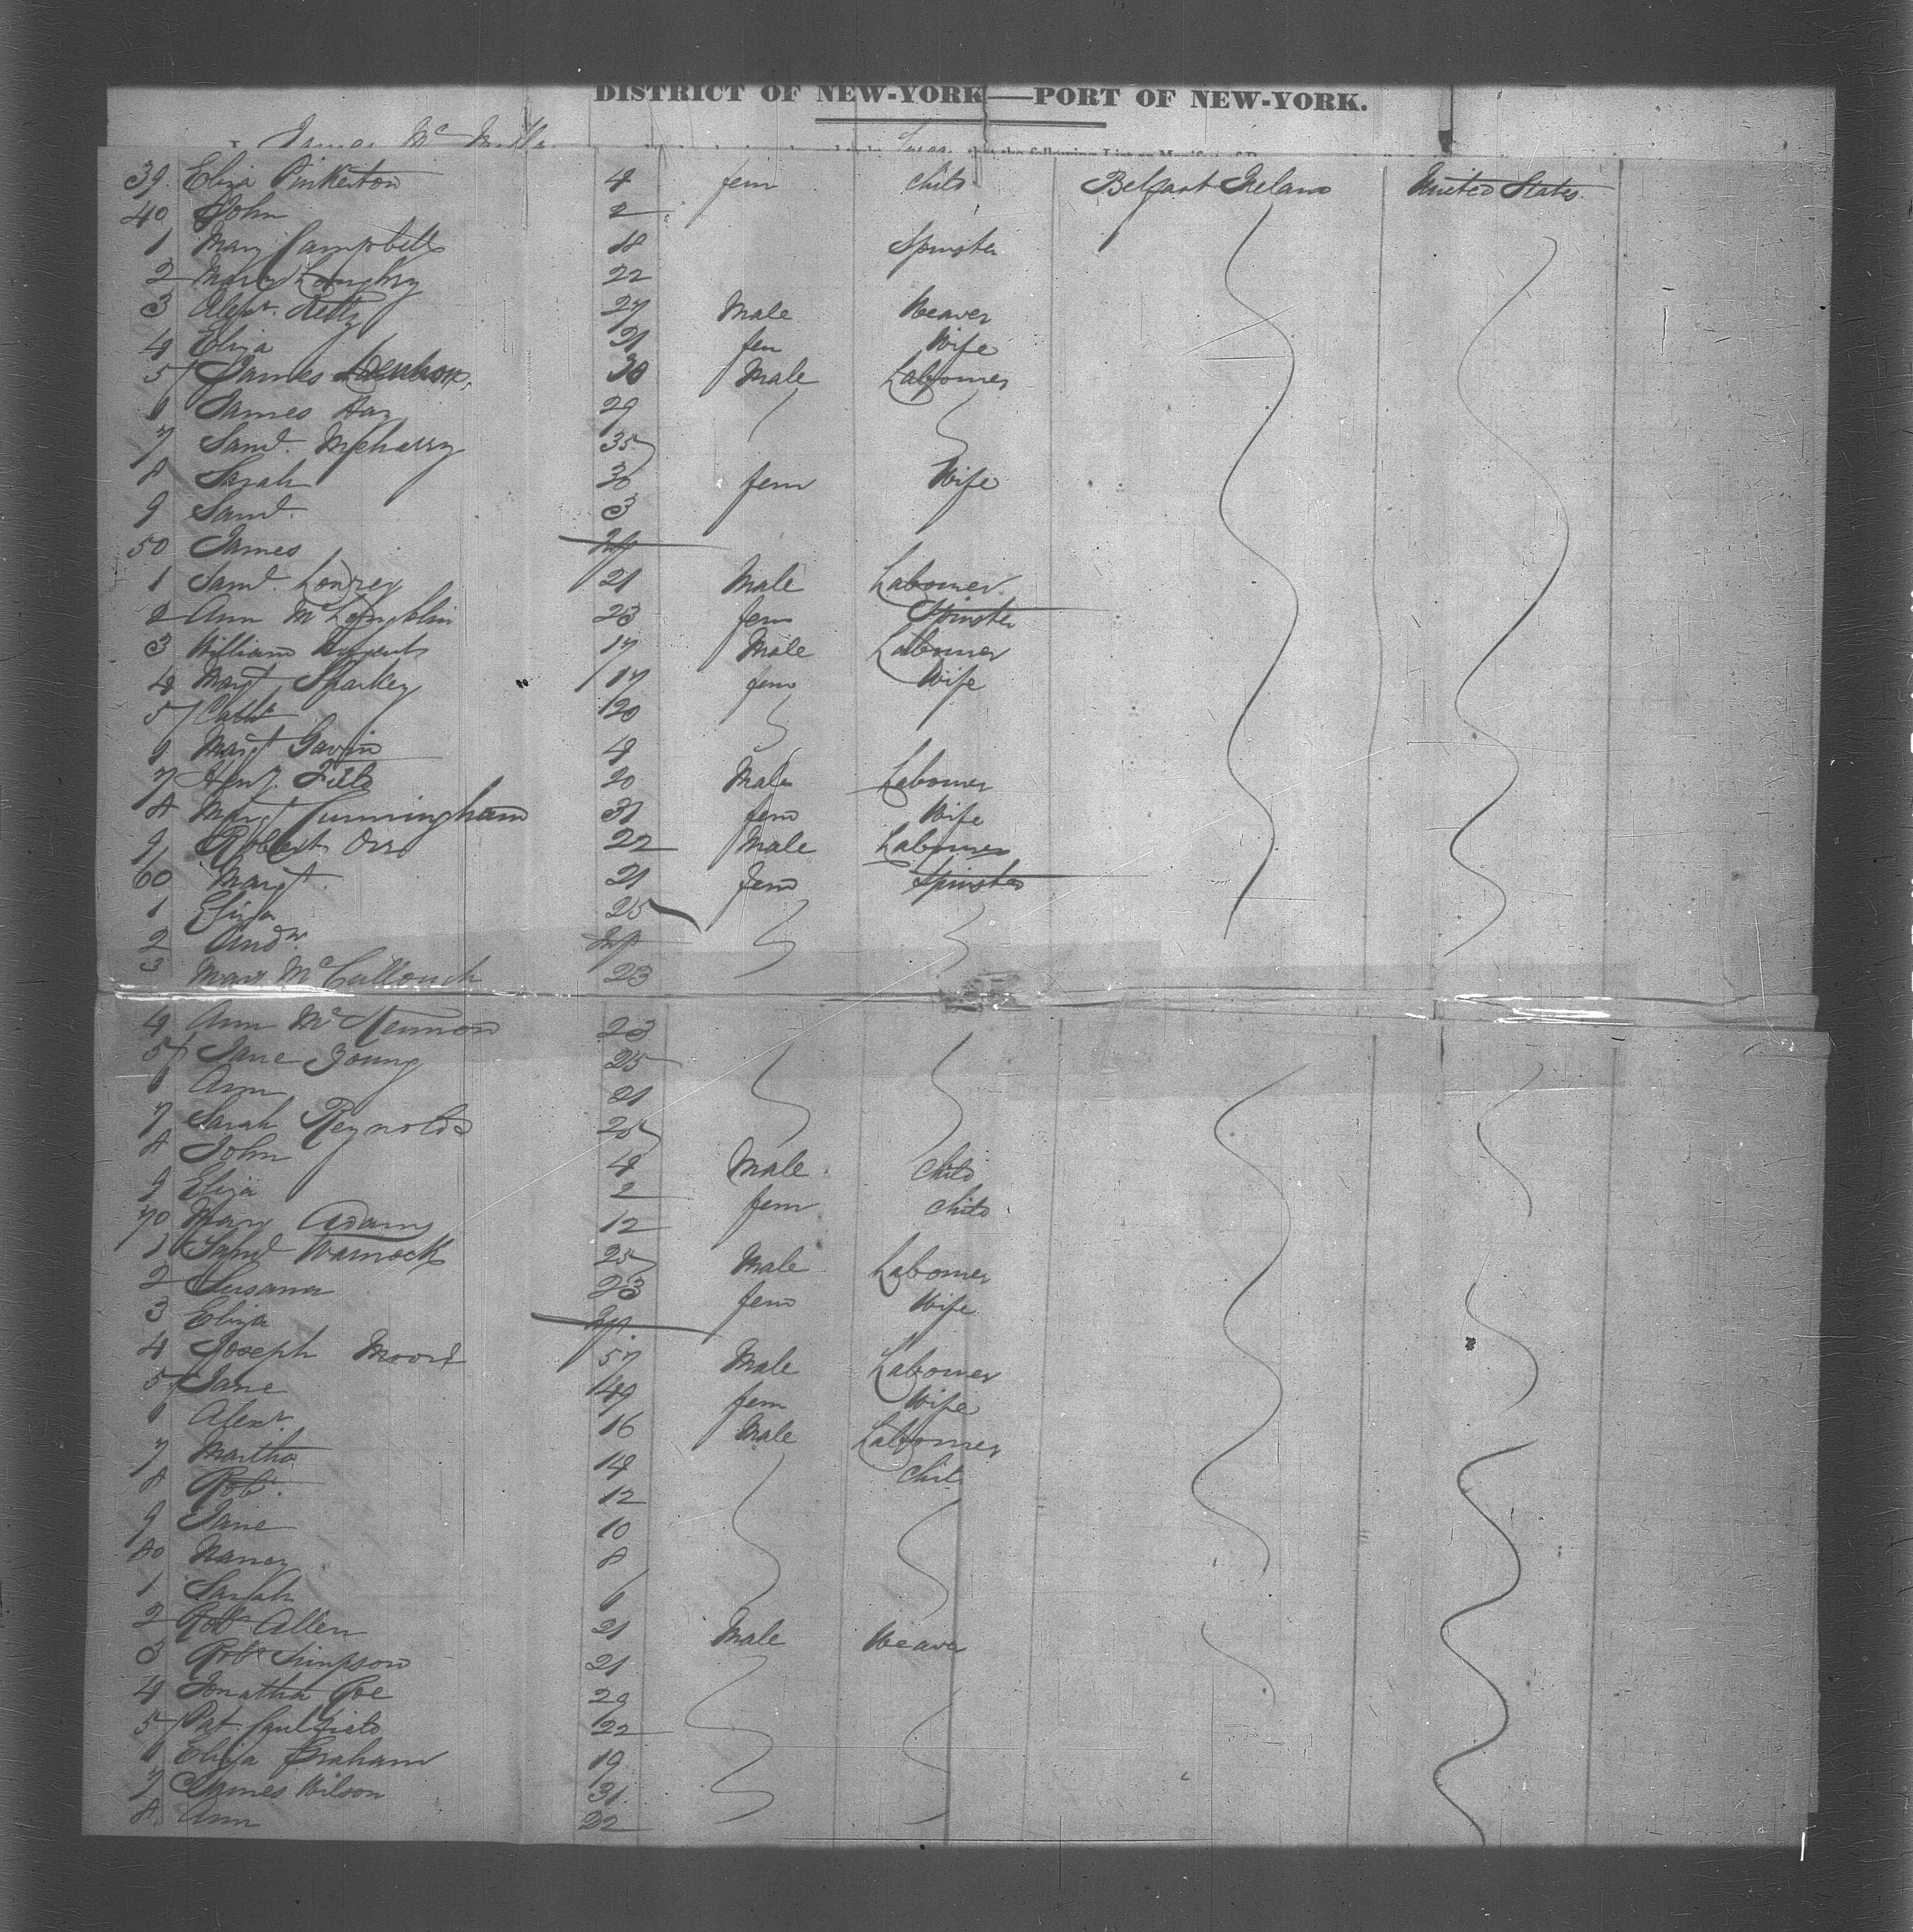 DISTRICT OF NEW-YORK—PORT OF NEW-YORK.
James Mc
39 Eliza Pinkerton 4 fem Child Belfast Ireland United States
40 John 2
1 Mary Campbell 18 Spinster
2 Mary Loughry 22
3 Alexr. 27 Male Weaver
4 Eliza 21 fem Wife
5 James 30 Male Labourer
6 James Hay 29
7 Saml. McCharry 35
8 Sarah 30 fem Wife
9 Saml. 3
50 James Inf
1 Saml. 21 Male Labourer
2 Ann McLoughlin 23 fem Spinster
3 William 17 Male Labourer
4 Margt Sharkey 17 fem Wife
5 Cath 20
6 Margt Gavin 4
7 Field 20 Male Labourer
8 Margt Cunningham 31 fem Wife
9 Robert Orr 22 Male Labourer
60 Margt. 21 fem Spinster
1 Eliza 25
2 Andw. Inf
3 Mary McCullouch 23
4 Ann McKennon 23
5 Jane Young 25
6 Ann 21
7 Sarah Reynolds 25
8 John 4 Male Child
9 Eliza 2 fem Child
70 Mary Adams 12
1 Saml Warnock 25 Male Labourer
2 Susana 23 fem Wife
3 Eliza Inf.
4 Joseph Moore 57 Male Labourer
5 Jane 49 fem Wife
6 Alexr. 16 Male Labourer
7 Martha 14 Child
8 Robt. 12
9 Jane 10
80 Nancy 8
1 Sarah 6
2 Robt Allen 21 Male Weaver
3 Robt Simpson 21
4 Jonathan 20
5 Pat Caulfield 22
6 Eliza Graham 19
7 James Wilson 31
8 Ann 22